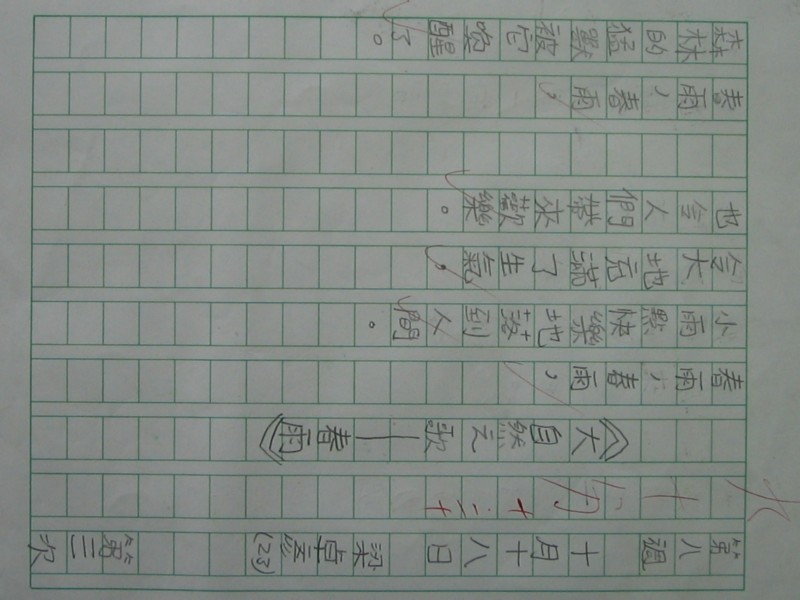 第八週 十月十八日 梁卓(23) 第三次
《大自然之歌——春雨》
春雨,春雨,
小雨點快樂地到人間。
令大地充滿了生氣,
也令人們帶來歡樂。
春雨,春雨,
森林的猛獸被它喚醒了。